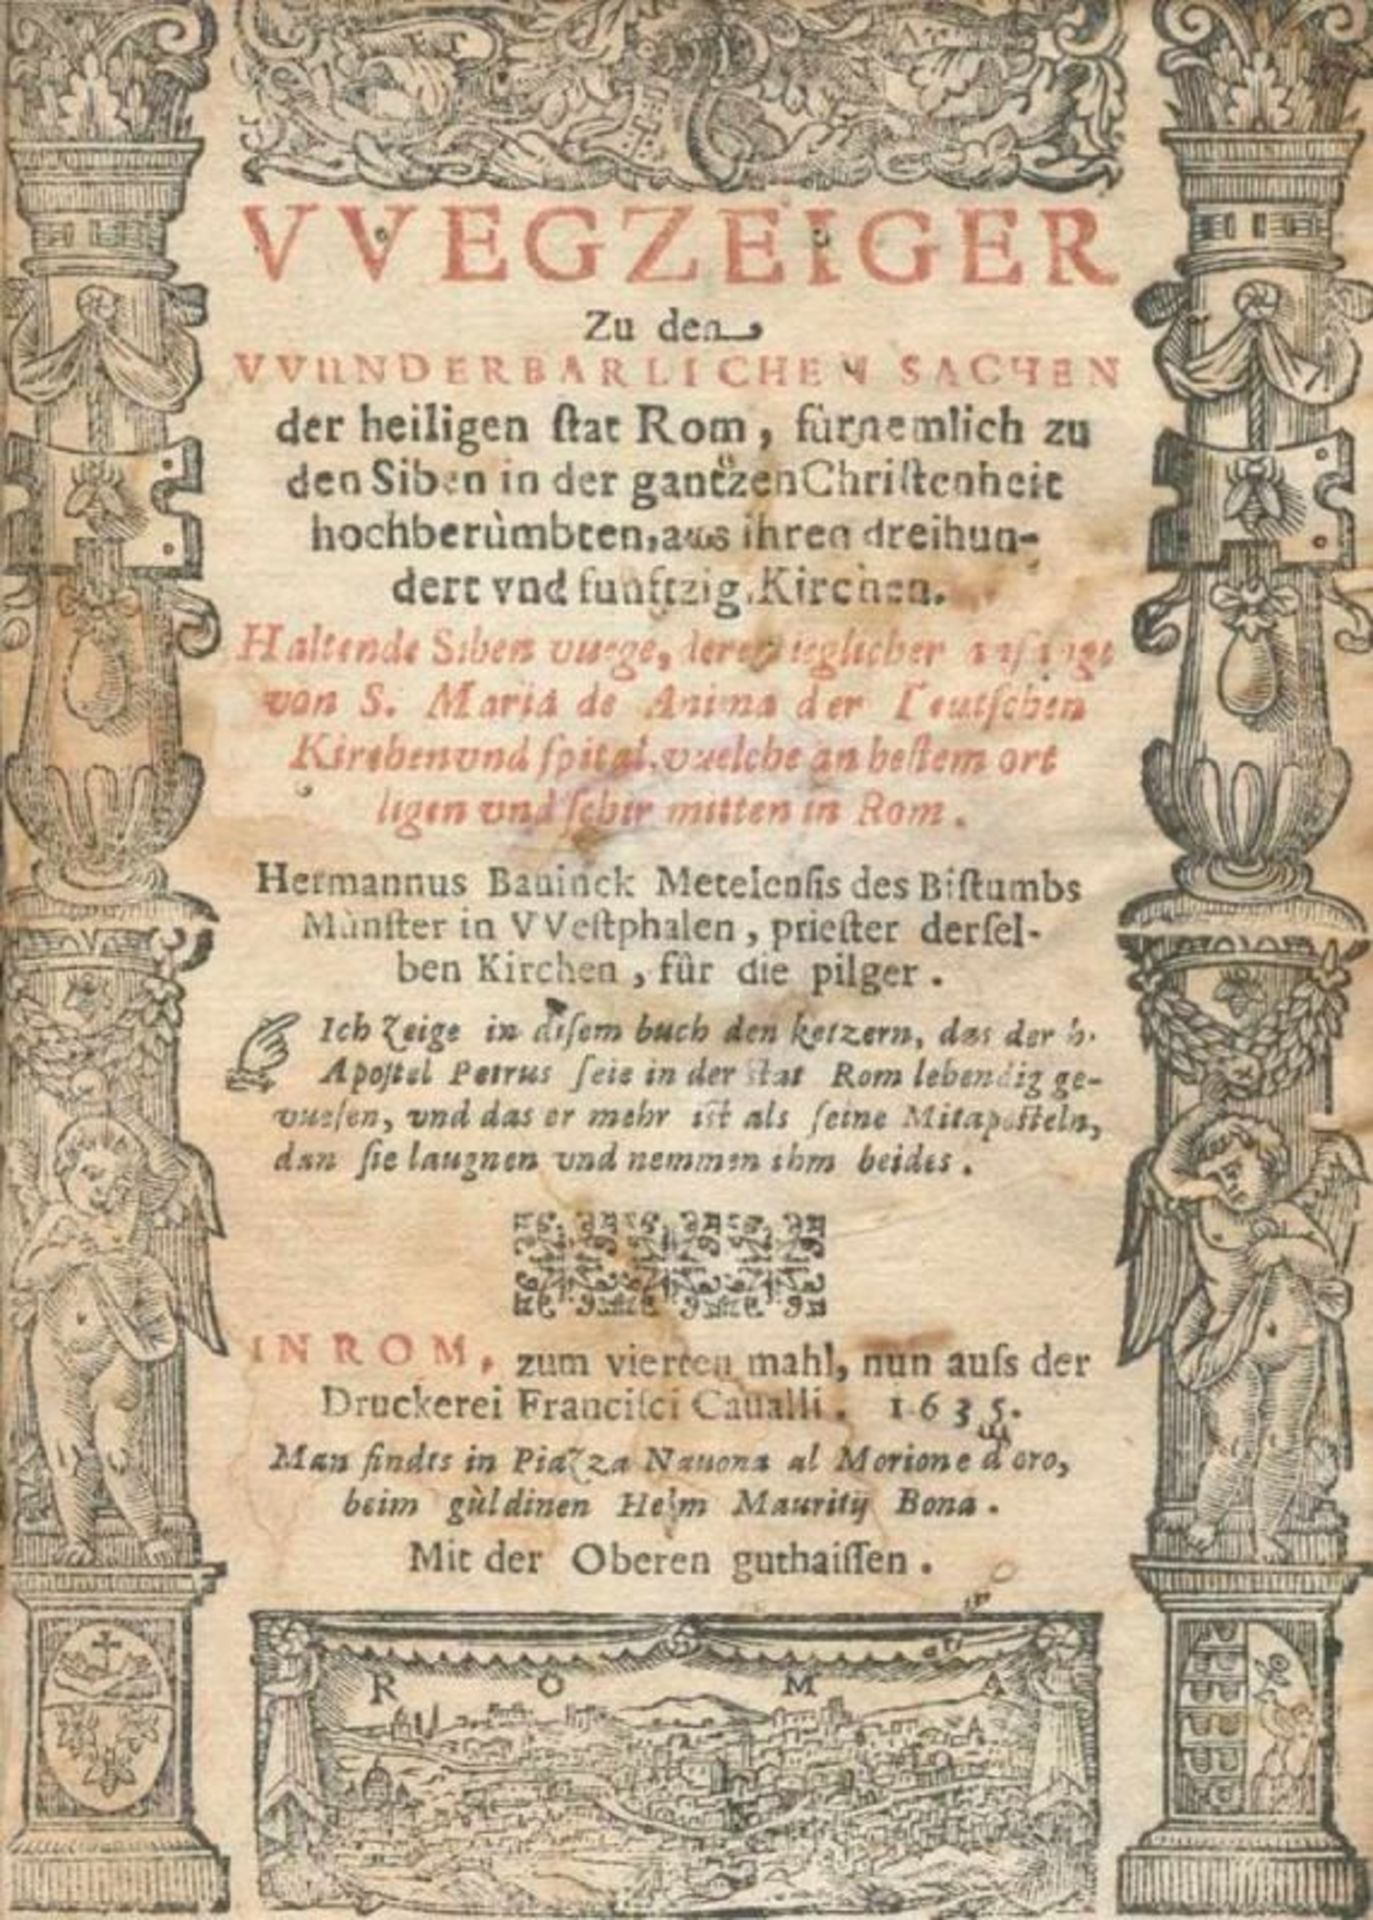 VVEGZEIGER
Zu den
VVUNDERBARLICHEN SACHEN
der heiligen ſtat Rom, fùrnemlich zu
den Siben in der gantzen Chriſtenheit
hochberùmbten, aus ihren dreihun-
dert vnd funftzig Kirchen.
Haltende Siben vuege, deren ieglicher anfangt
von S. Maria de Anima der Teutſchen
Kirchen vnd ſpital, vuelche an beſtem ort
ligen vnd ſchir mitten in Rom.
Hermannus Bauinck Metelenſis des Biſtumbs
Mùnſter in VVeſtphalen, prieſter derſel-
ben Kirchen, fûr die pilger.
Ich Zeige in diſem buch den ketzern, das der h.
Apoſtel Petrus ſeie in der ſtat Rom lebendig ge-
vueſen, vnd das er mehr iſt als ſeine Mitapoſteln,
dan ſie laugnen vnd nemmen ihm beides.
IN ROM, zum vierten mahl, nun auſs der
Druckerei Franciſci Caualli. 1635.
Man findts in Piazza Nauona al Morione d'oro,
beim gùldinen Helm Mauritij Bona.
Mit der Oberen guthaiſſen.
ROMA